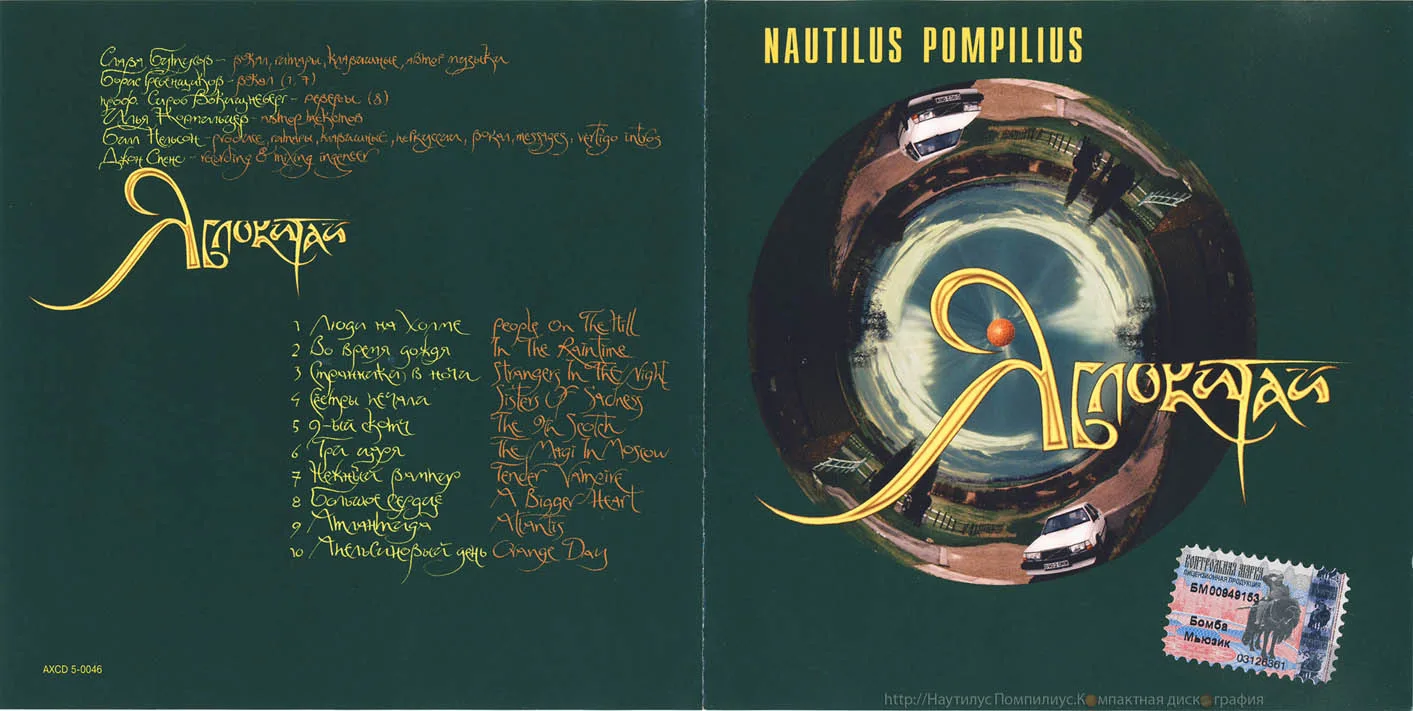 Слава Бутусов – вокал, гитары, клавишные, автор музыки
Борис Гребенщиков – вокал (1, 7)
Илья Кормильцев – автор текстов
Билл Нельсон – produce, гитары, клавишные, перкуссии, вокал, messages, vertigo intros
Джон Спенс – recording & mixing ingeneer
Яблокитай
1 Люди на Холме People On The Hill
2 Во время дождя In The Raintime
3 Странники в ночи Strangers In The Night
4 Сёстры печали Sisters Of Sadness
5 9-ый скотч The 9th Scotch
6 Три царя The Magi In Moscow
7 Нежный вампир Tender Vampire
8 Большое Сердце A Bigger Heart
9 Атлантида Atlantis
10 Апельсиновый день Orange Day
AXCD 5-0046
NAUTILUS POMPILIUS
Яблокитай
КОНТРОЛЬНАЯ МАРКА
ЛИЦЕНЗИОННАЯ ПРОДУКЦИЯ
БМ00949153
Бомба
Мьюзик
03126361
http://Наутилус Помпилиус.Компактная дискография